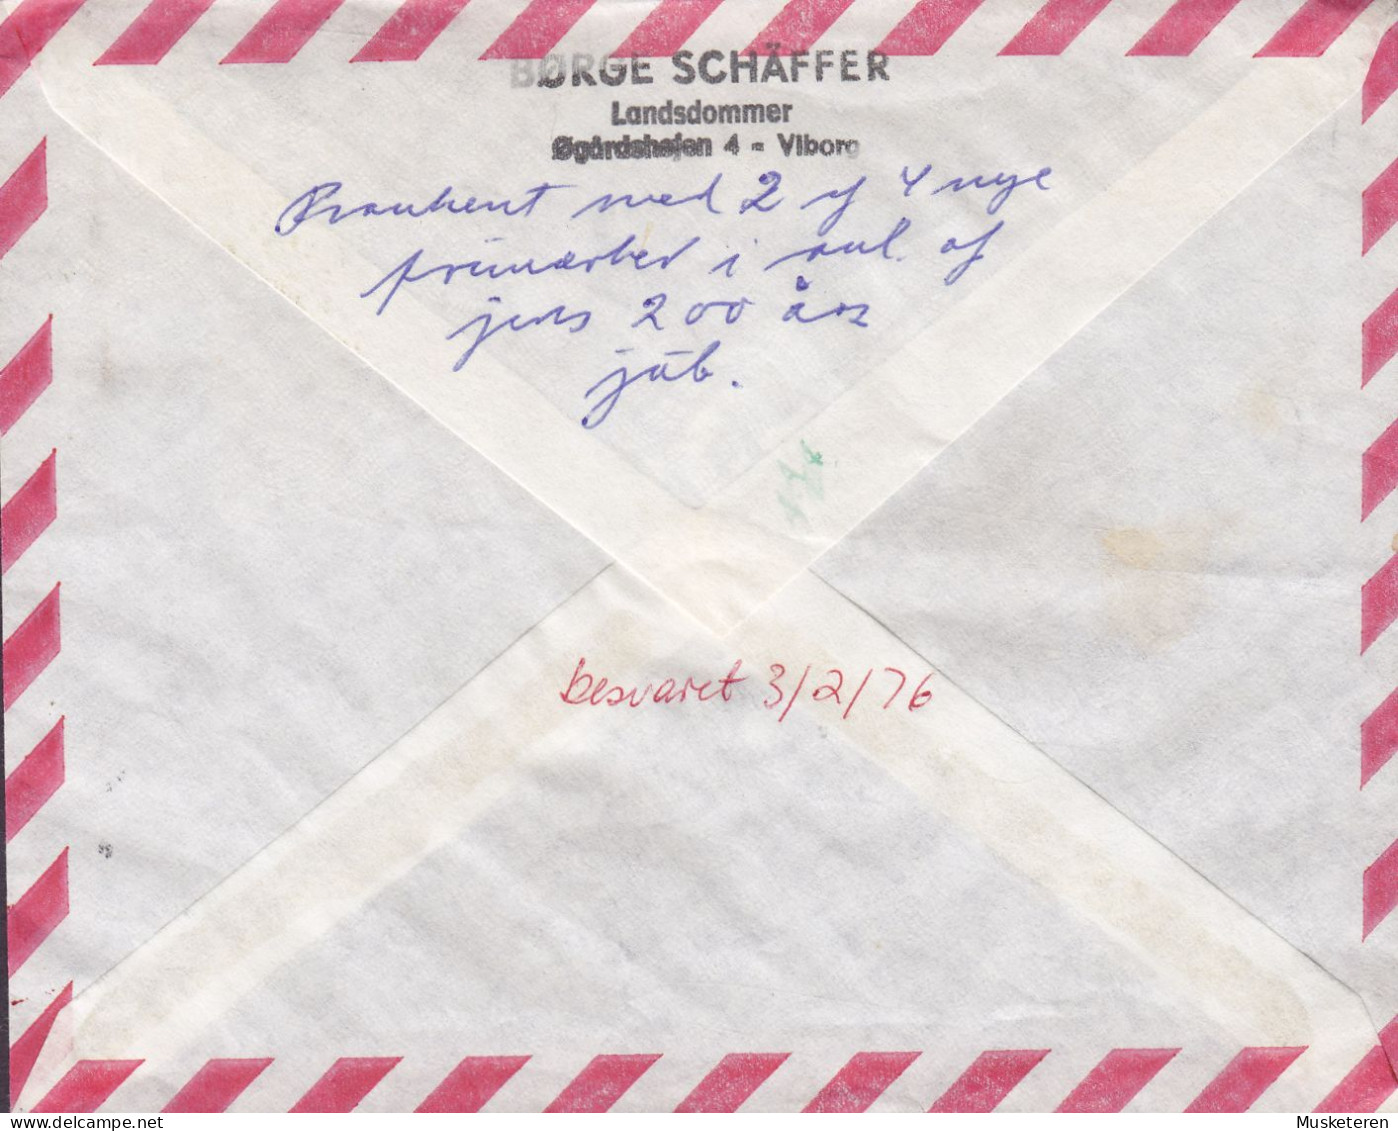 BØRGE SCHÄFFER
Landsdommer
Øgårdshøjen 4 - Viborg
Frankeret med 2 af 4 nye
frimærker i anl. af
jens 200 års
jub.
besvaret 3/2/76
Musketeren